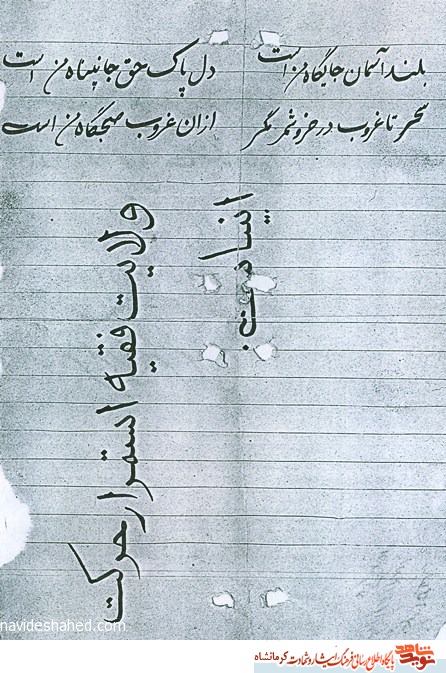 بلند آسمان جایگاه من است دل پاک حق جانپناه من است
سحر تا غروب در خروشم مگر از آن غروب صبحگاه من است
ولایت فقیه استمرار حرکت
انبیا است.
navideshahed.com
نوید شاهد
پایگاه اطلاع رسانی فرهنگ ایثار و شهادت کرمانشاه